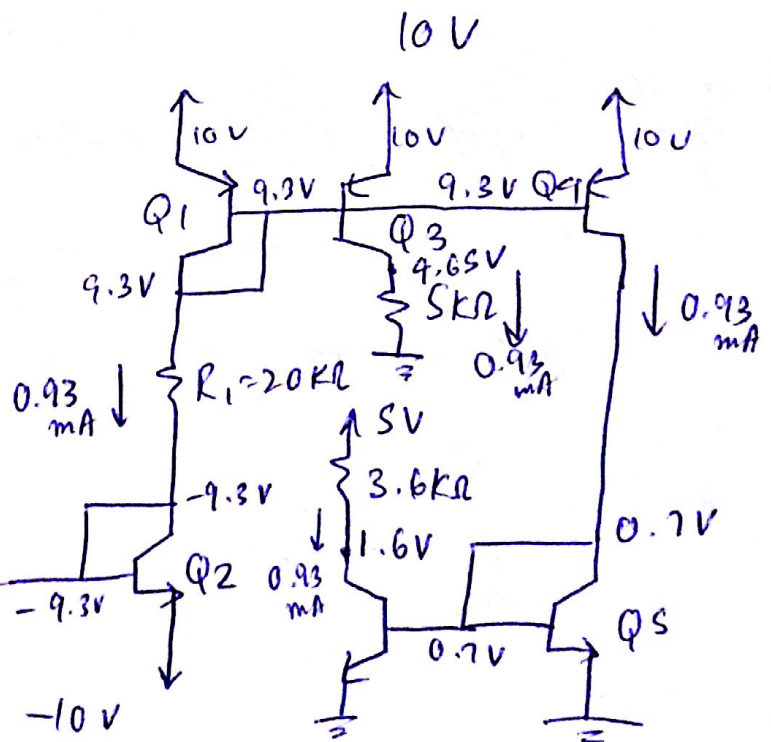 10 V
10 V
10V
10 V
Q1
9.3V
9.3V
Q4
Q3
9.3V
4.65V
5KΩ
0.93
mA
0.93
mA
0.93
mA
R1=20KΩ
5V
3.6KΩ
-9.3V
1.6V
0.7V
Q2
0.93
mA
-9.3V
0.7V
Q5
-10 V